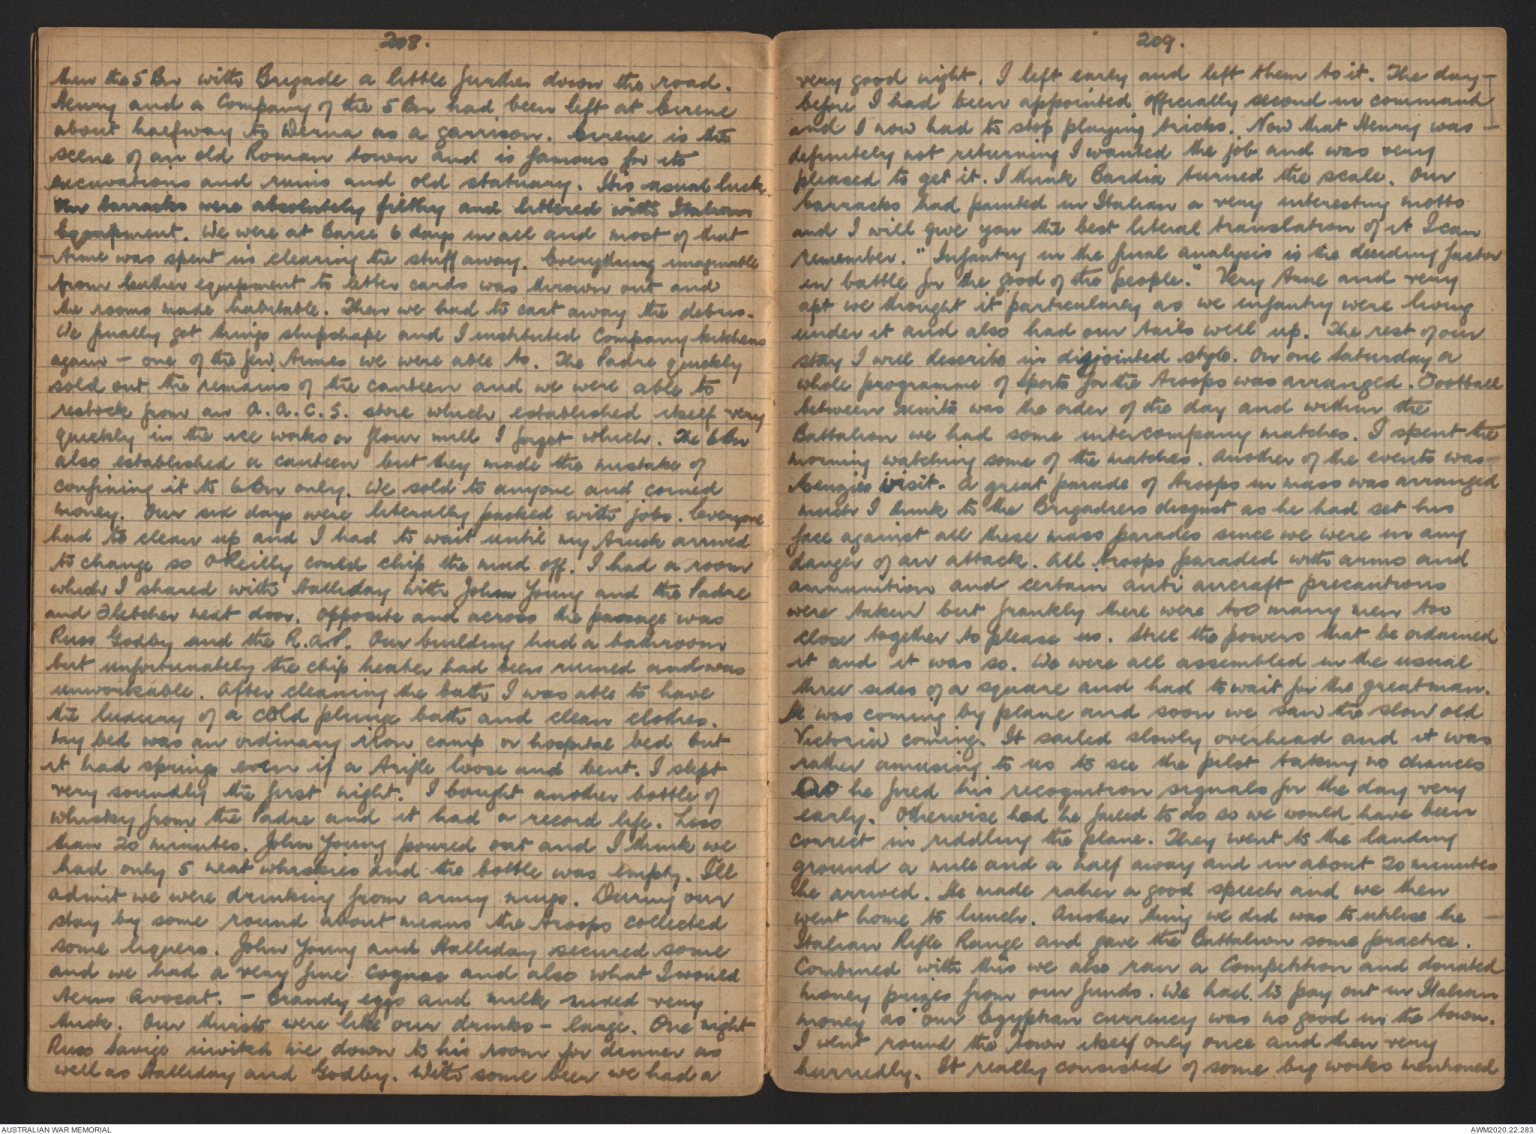 208.
then the 5 Bn with Brigade a little further down the road.
Henry and a Company of the 5 Bn had been left at Cirene
about halfway to Derna as a garrison. Cirene is the
scene of an old Roman town and is famous for its
excavations and ruins and old statuary. His usual luck.
Our barracks were absolutely filthy and littered with Italian
Equipment. We were at Barce 6 days in all and most of that
time was spent in clearing the stuff away. Everything imaginable
from leather equipment to letter cards was thrown out and
the rooms made habitable. Then we had to cart away the debris.
We finally got things shipshape and I instituted Company kitchens
again - one of the few times we were able to. The Padre quickly
sold out the remains of the canteen and we were able to
restock from an A.A.C.S. store which established itself very
quickly in the ice works or flour mill I forget which. The 6 Bn
also established a canteen but they made the mistake of
confining it to 6 Bn only. We sold to anyone and coined
money. Our six days were literally packed with jobs. Everyone
had to clean up and I had to wait until my truck arrived
to change so O'Reilly could chip the mud off. I had a room
which I shared with Halliday with John Young and the Padre
and Fletcher next door. Opposite and across the passage was
Russ Godby and the R.A.P. Our building had a bathroom
but unfortunately the chip heater had been ruined and was
unworkable. After cleaning the bath I was able to have
the luxury of a cold plunge bath and clean clothes.
My bed was an ordinary iron camp or hospital bed but
it had springs even if a trifle loose and bent. I slept
very soundly the first night. I bought another bottle of
whisky from the Padre and it had a record life. Less
than 20 minutes. John Young poured out and I think we
had only 5 neat whiskies and the bottle was empty. I'll
admit we were drinking from army mugs. During our
stay by some round about means the troops collected
some liquers. John Young and Halliday secured some
and we had a very fine cognac and also what I would
term Avocat. - Brandy eggs and milk mixed very
thick. Our thirsts were like our drinks - large. One night
Russ Savige invited me down to his room for dinner as
well as Halliday and Godby. With some beer we had a
209.
very good night. I left early and left them to it. The day
before I had been appointed officially second in command
and I now had to stop playing tricks. Now that Henry was
definitely not returning I wanted the job and was very
pleased to get it. I think Bardia turned the scale. Our
barracks had painted in Italian a very interesting motto
and I will give you the best literal translation of it I can
remember. "Infantry in the final analysis is the deciding factor
in battle for the good of the people." Very true and very
apt we thought it particularly as we infantry were living
under it and also had our tails well up. The rest of our
stay I will describe in disjointed style. On one Saturday a
whole programme of Sports for the troops was arranged. Football
between units was the order of the day and within the
Battalion we had some intercompany matches. I spent the
morning watching some of the matches. Another of the events was
Menzies visit. A great parade of troops in mass was arranged
much I think to the Brigadiers disgust as he had set his
face against all these mass parades since we were in any
danger of air attack. All troops paraded with arms and
ammunition and certain anti aircraft precautions
were taken but frankly there were too many men too
close together to please us. Still the powers that be ordained
it and it was so. We were all assembled in the usual
three sides of a square and had to wait for the great man.
He was coming by plane and soon we saw the slow old
Victoria coming. It sailed slowly overhead and it was
rather amusing to us to see the pilot taking no chances
as he fired his recognition signals for the day very
early. Otherwise had he failed to do so we would have been
correct in riddling the plane. They went to the landing
ground a mile and a half away and in about 20 minutes
he arrived. He made rather a good speech and we then
went home to lunch. Another thing we did was to utilise the
Italian Rifle Range and gave the Battalion some practice.
Combined with this we also ran a Competition and donated
money prizes from our funds. We had to pay out in Italian
money as our Egyptian currency was no good in the town.
I went round the town itself only once and then very
hurriedly. It really consisted of some big works mentioned
AUSTRALIAN WAR MEMORIAL
AWM2020.22.283